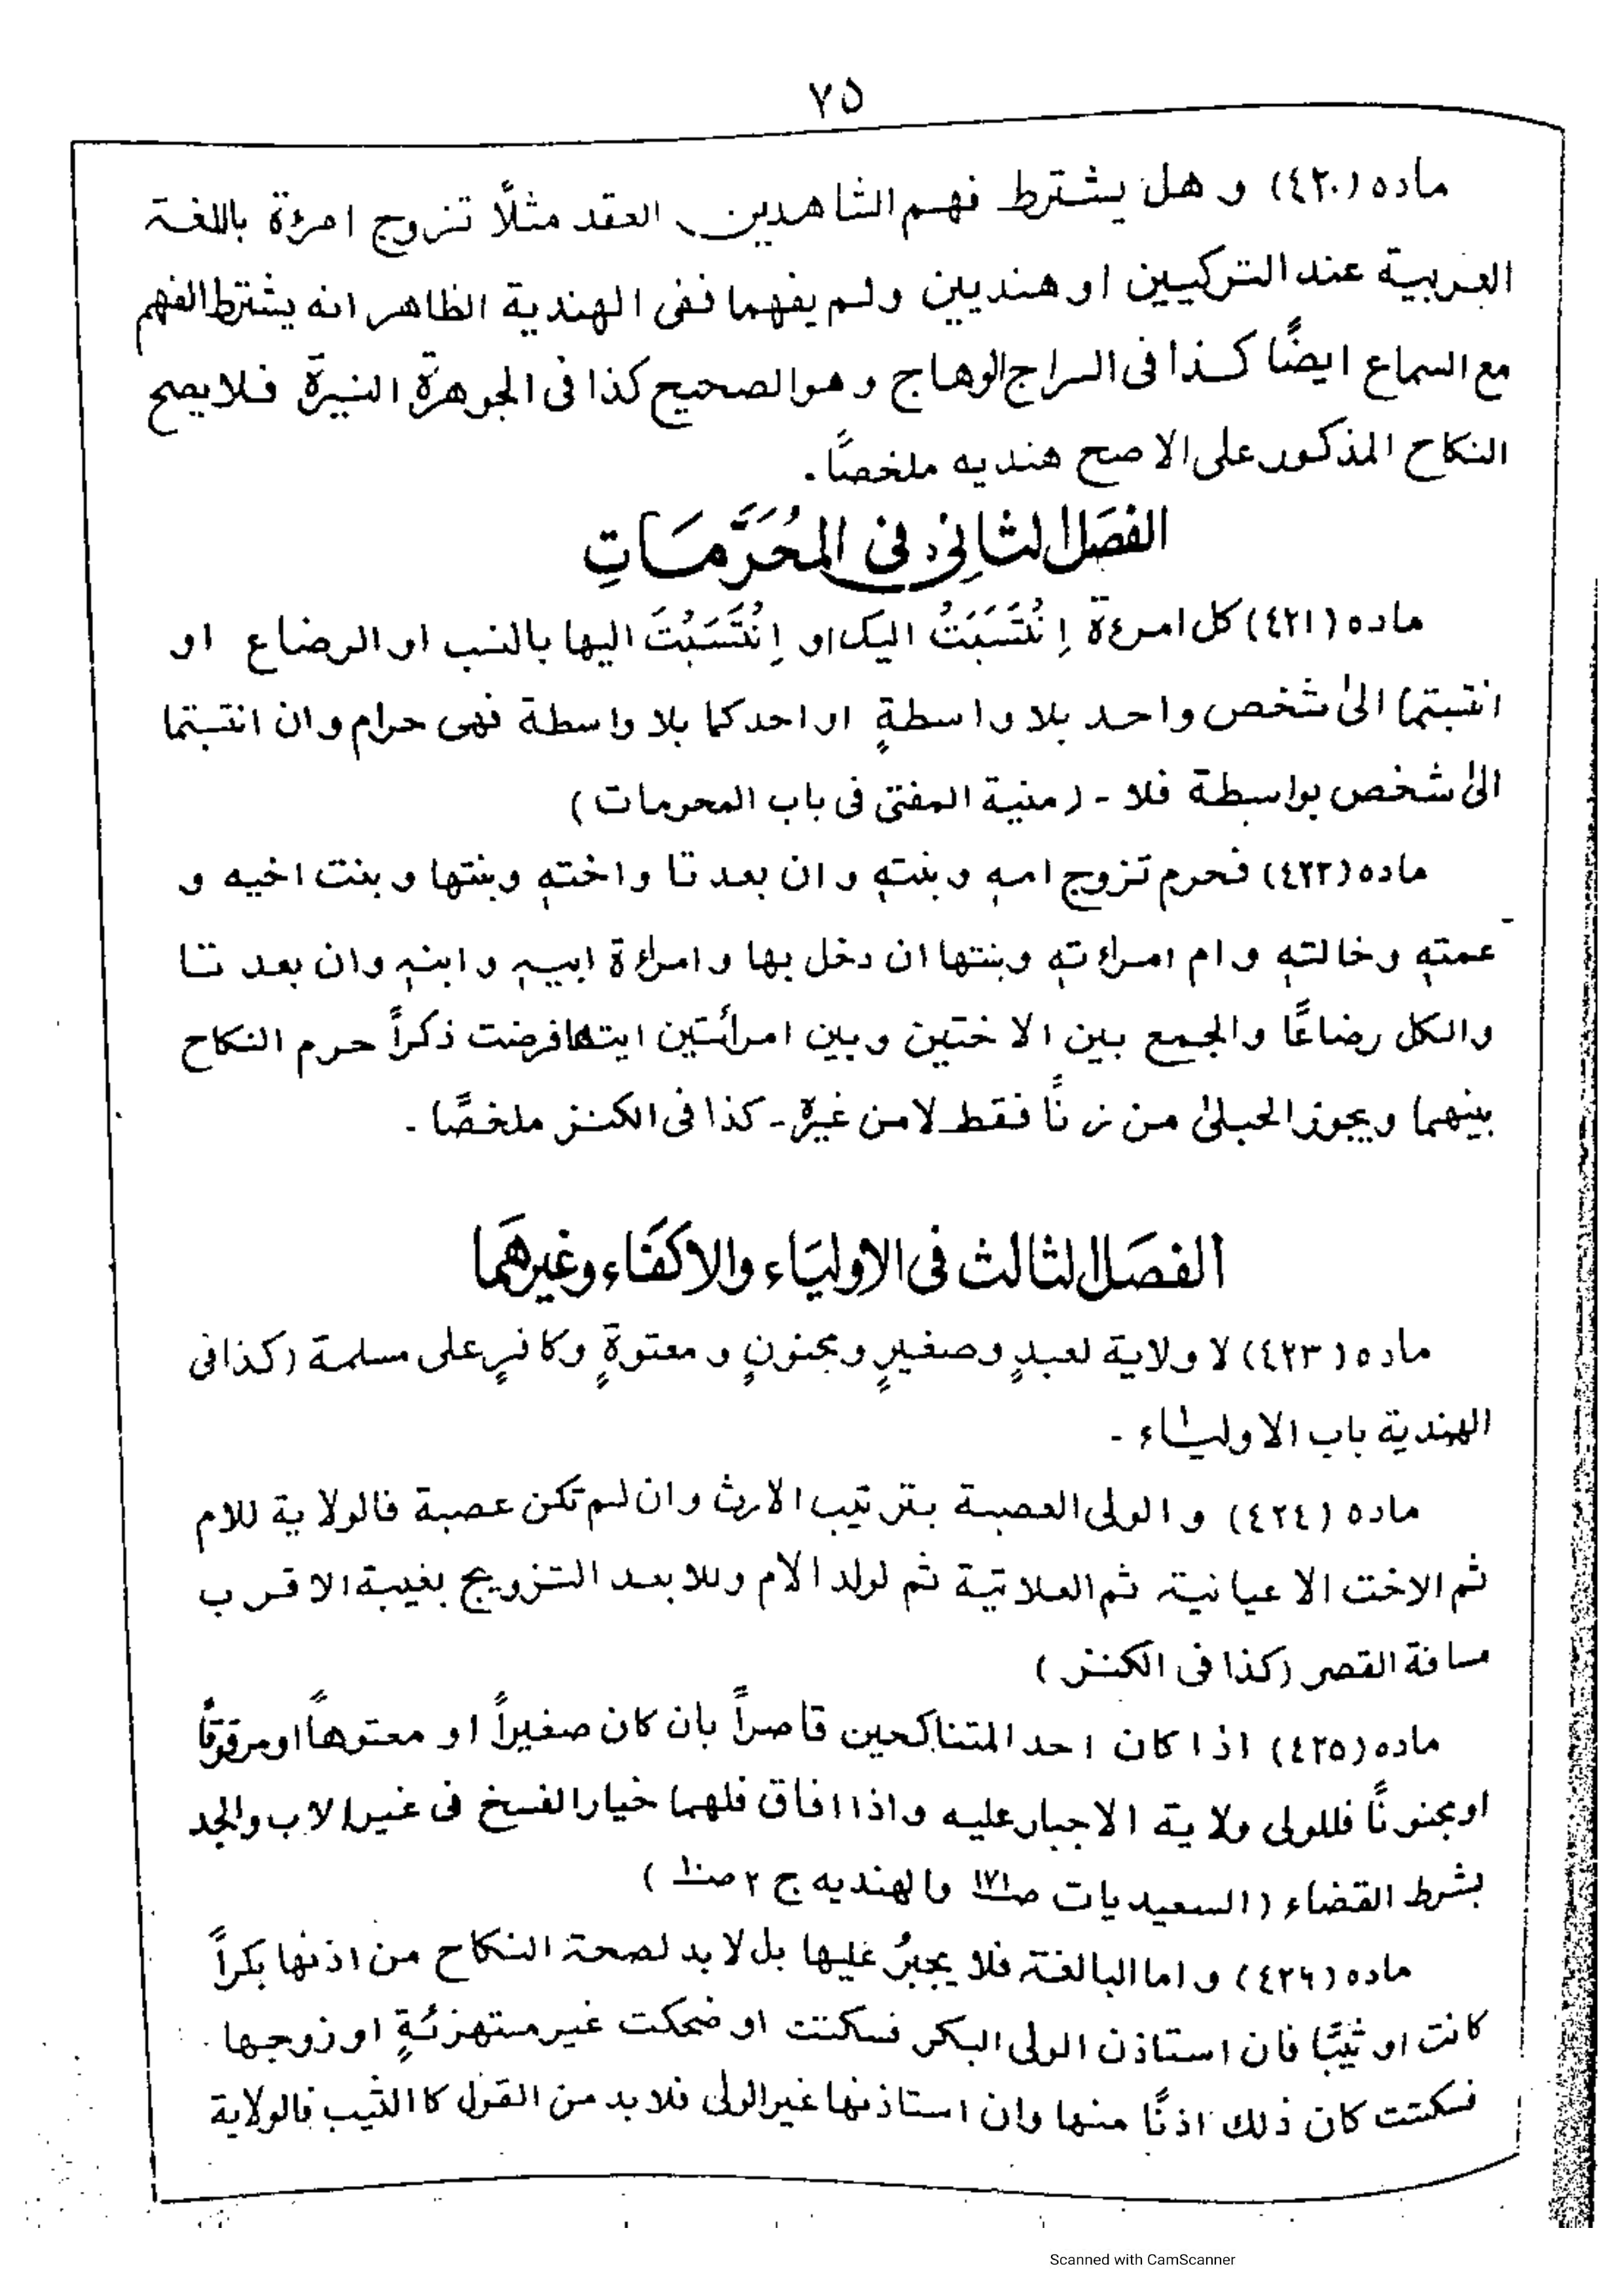 ٧٥
ماده (٤٢٠) و هل يشترط فهم الشاهدين العقد مثلاً تزوج امرءة باللغة
العربية عند التركيين او هنديين ولم يفهما ففى الهندية الظاهر انه يشترط الفهم
مع السماع ايضًا كذا فى السراج الوهاج وهو الصحيح كذا فى الجوهرة النيرة فلا يصح
النكاح المذكور على الاصح هنديه ملخصًا.
الفصل الثانى فى المُحَرَّمَاتِ
ماده (٤٢١) كل امرءة اِنْتَسَبَتْ اليك او اِنْتَسَبْتَ اليها بالنسب او الرضاع او
انتسبتما الىٰ شخص واحد بلا واسطةٍ او احدكما بلا واسطة فهى حرام وان انتسبتما
الىٰ شخص بواسطة فلا - (منية المفتى فى باب المحرمات)
ماده (٤٢٢) فحرم تزوج امه وبنته وان بعدتا واخته وبنتها وبنت اخيه و
عمته وخالته وام امراءته وبنتها ان دخل بها وامراءة ابيه وابنه وان بعدتا
والكل رضاعًا والجمع بين الاختين وبين امرأتين ايتهما فرضت ذكراً حرم النكاح
بينهما ويجوز الحبلىٰ من زنًا فقط لا من غيره - كذا فى الكنز ملخصًا -
الفصل الثالث فى الاولياء والاكفاء وغيرهما
ماده (٤٢٣) لا ولاية لعبدٍ وصغيرٍ ومجنونٍ و معتوةٍ وكافرٍ على مسلمة (كذا فى
الهندية باب الاولياء -
ماده (٤٢٤) و الولى العصبة بترتيب الارث وان لم تكن عصبة فالولاية للام
ثم الاخت الاعيانية ثم العلاتية ثم لولد الام وللابعد التزويج بغيبة الاقرب
مسافة القصر (كذا فى الكنز)
ماده (٤٢٥) اذا كان احد المتناكحين قاصراً بان كان صغيراً او معتوهاً او مرقوقًا
او مجنونًا فللولى ولاية الاجبار عليه واذا افاق فلهما خيار الفسخ فى غير الاب والجد
بشرط القضاء (السعيديات صـ١٧١ والهنديه ج ٢ صـ١٠)
ماده (٤٢٦) و اما البالغة فلا يجبرُ عليها بل لا بد لصحة النكاح من اذنها بكراً
كانت او ثيبًا فان استاذن الولى البكر فسكتت او ضحكت غير مستهزئةٍ او زوجها
فسكتت كان ذلك اذنًا منها وان استاذنها غير الولى فلا بد من القول كالثيب فالولاية
Scanned with CamScanner